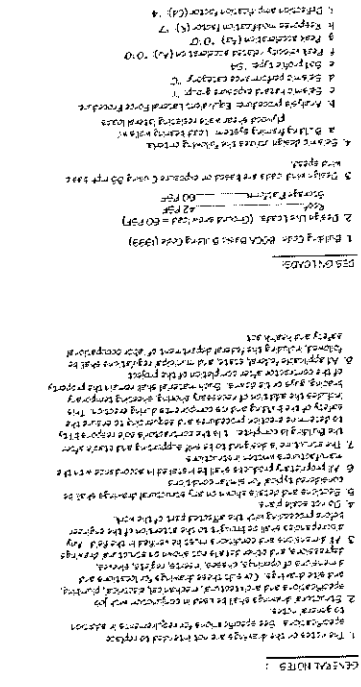 GENERAL NOTES :
1. The notes on the drawings are not intended to replace
specifications. See specifications for requirements in addition
to general notes.
2. Structural drawings shall be used in conjunction with job
specifications and architectural, mechanical, electrical, plumbing,
and site drawings. Consult these drawings for locations and
dimensions of openings, chases, inserts, reglets, sleeves,
depressions, and other details not shown on structural drawings.
3. All dimensions and conditions must be verified in the field. Any
discrepancies shall be brought to the attention of the engineer
before proceeding with the affected part of the work.
4. Do not scale plans.
5. Sections and details shown on any structural drawings shall be
considered typical for similar conditions.
6. All proprietary products shall be installed in accordance with the
manufacturers written instructions.
7. The structure is designed to be self supporting and stable after
the building is complete. It is the contractors sole responsibility
to determine erection procedures and sequencing to ensure the
safety of the building and its components during erection. This
includes the addition of necessary shoring, sheeting, temporary
bracing, guys or tiedowns. Such material shall remain the property
of the contractor after completion of the project.
8. All applicable federal, state, and municipal regulations shall be
followed, including the federal department of labor occupational
safety and health act.
DESIGN LOADS:
1. Building Code: BOCA Basic Building Code (1999)
2. Design Live Loads: (Ground snow load = 60 PSF)
Roof 42 PSF
Storage Platform 60 PSF
3. Design wind loads are based on exposure C using 85 mph basic
wind speed.
4. Seismic design utilizes the following criteria:
a. Building framing system: Load bearing walls w/
plywood shear walls resisting lateral loads
b. Analysis procedure: Equivalent Lateral Force Procedure
c. Seismic hazard exposure group: "I"
d. Seismic performance category: "C"
e. Soil profile type: "S4"
f. Peak velocity related acceleration (Av): "0.10"
g. Peak acceleration (Aa): "0.10"
h. Response modification factor (R): "7"
i. Deflection amplification factor (Cd): "4"